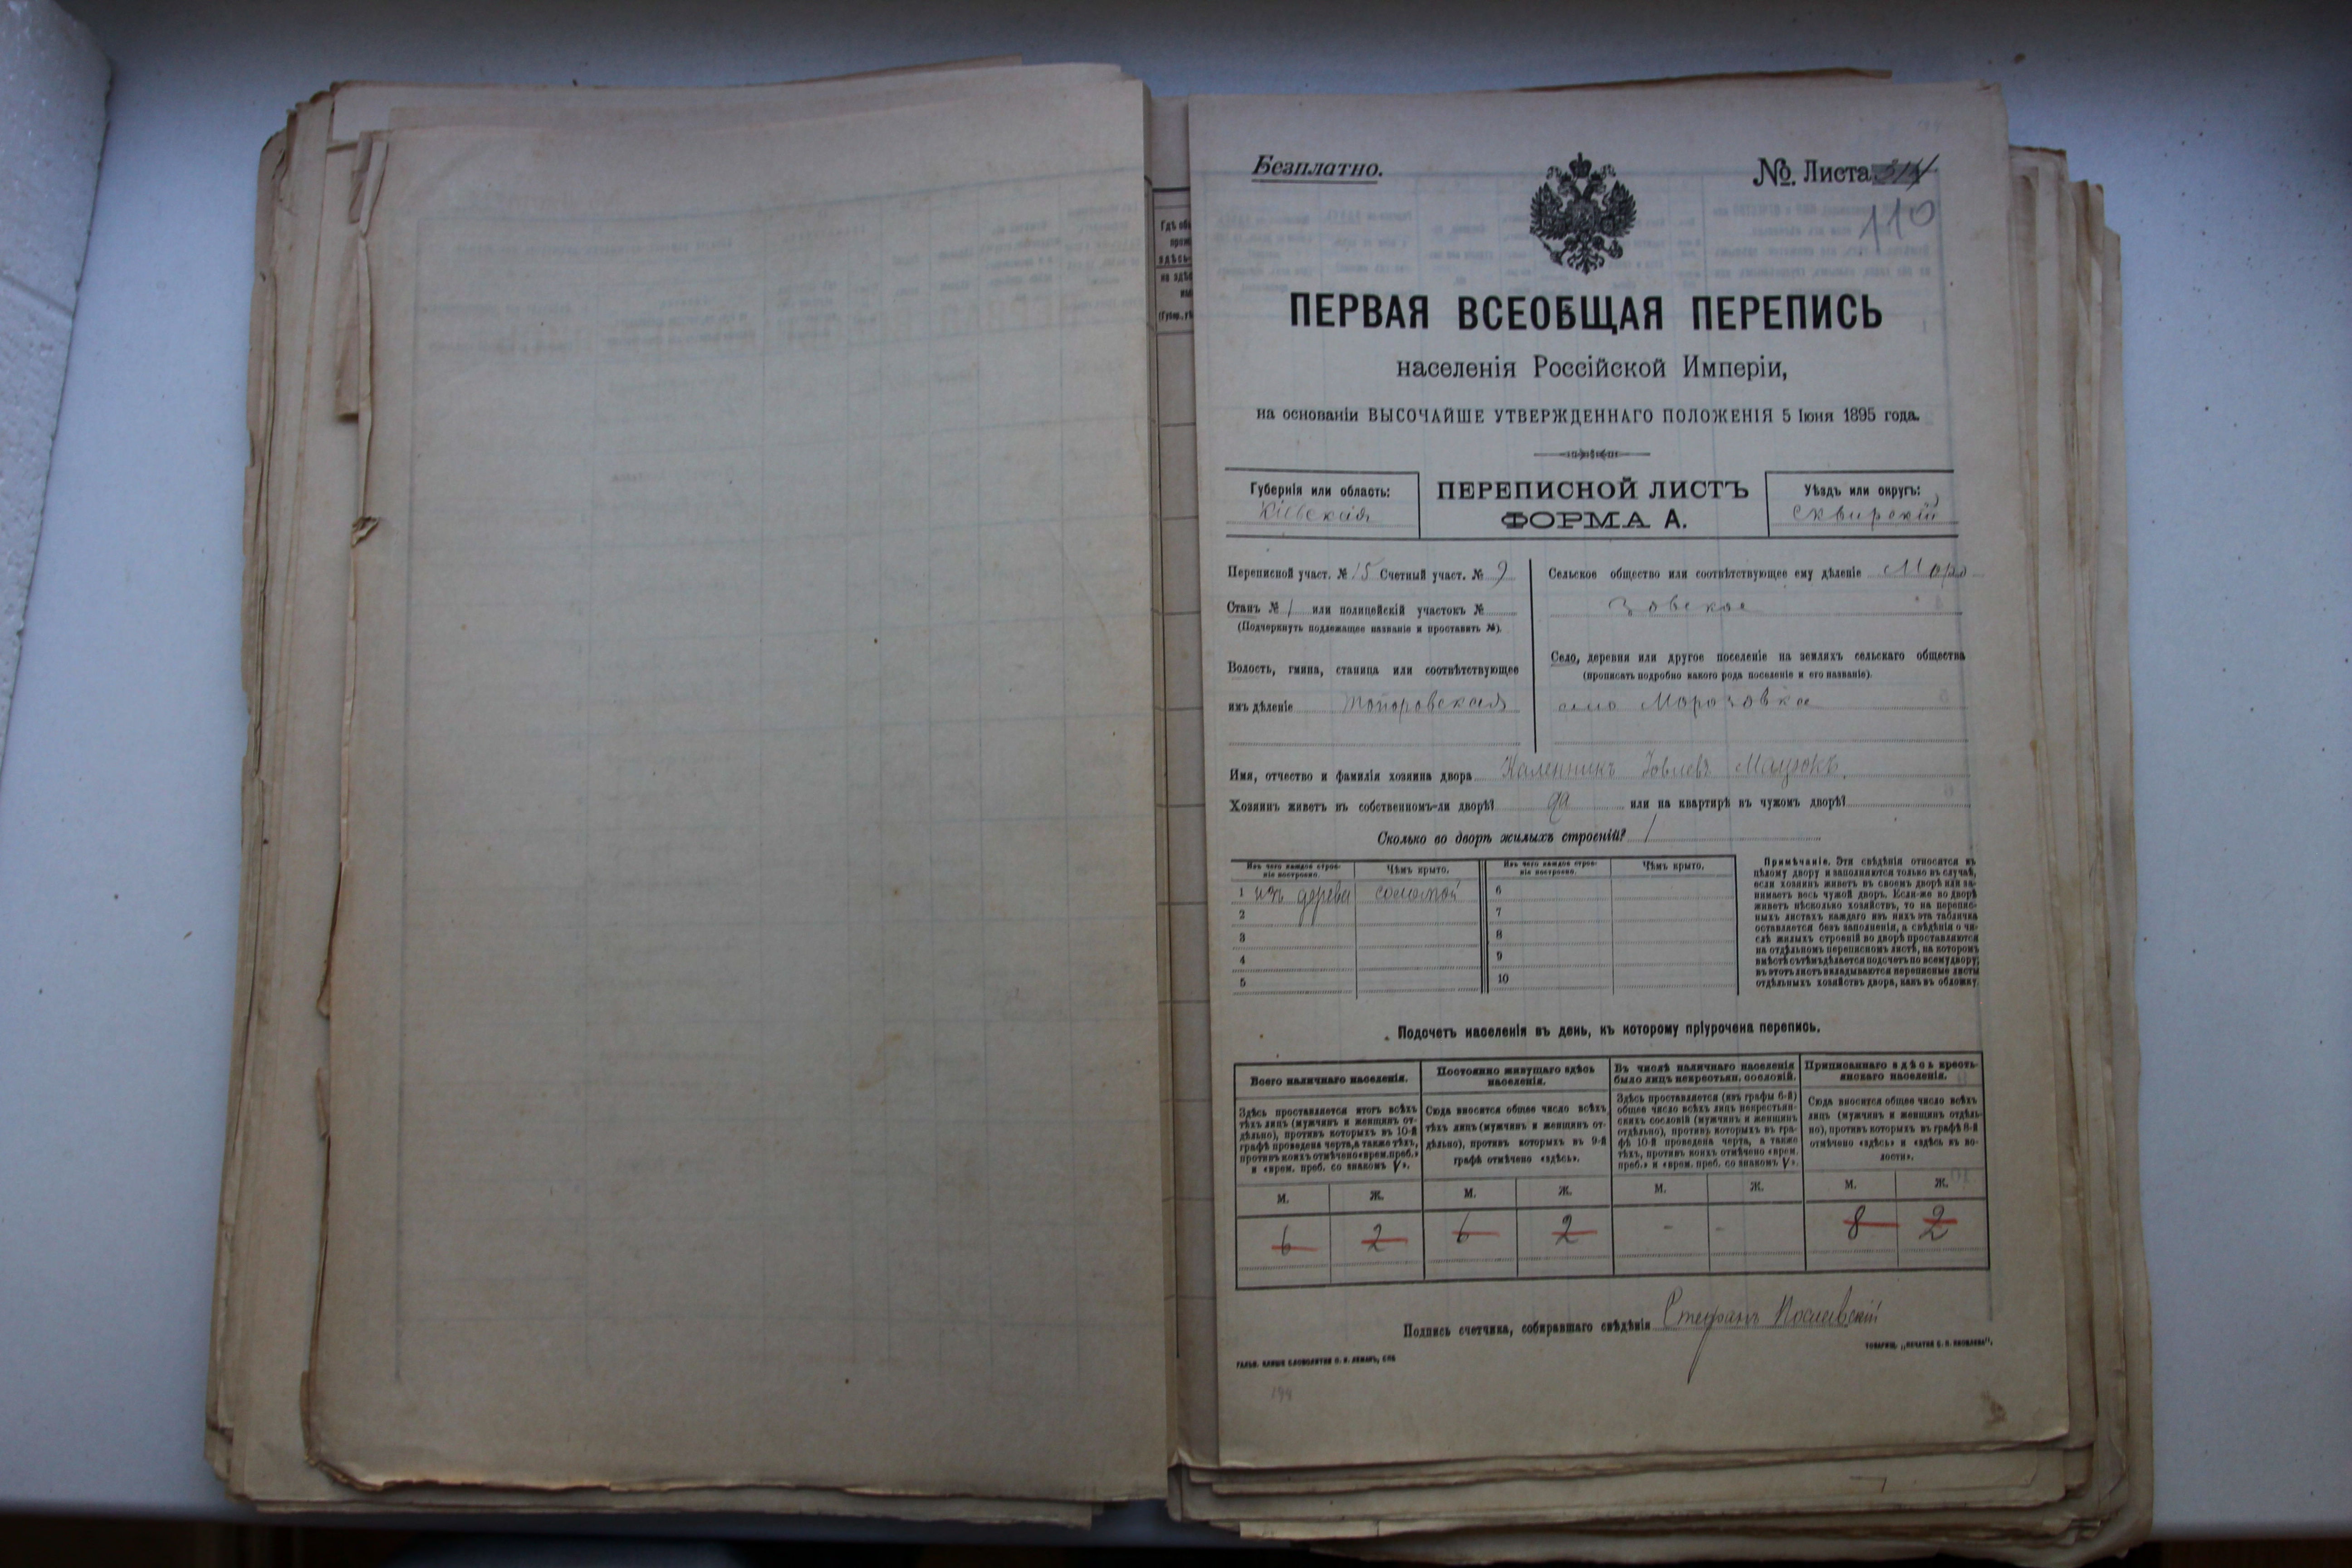 Безплатно.
№. Листа
110
ПЕРВАЯ ВСЕОБЩАЯ ПЕРЕПИСЬ
населенія Россійской Имперіи,
на основаніи ВЫСОЧАЙШЕ УТВЕРЖДЕННАГО ПОЛОЖЕНІЯ 5 Іюня 1895 года.
Губернія или область:
Кіевская
ПЕРЕПИСНОЙ ЛИСТЪ
ФОРМА А.
Уѣздъ или округъ:
Сквирскій
Переписной участ. № 15 Счетный участ. № 9
Станъ № 1 или полицейскій участокъ №
(Подчеркнуть подлежащее названіе и проставить №).
Волость, гмина, станица или соотвѣтствующее
имъ дѣленіе Топоровская
Сельское общество или соотвѣтствующее ему дѣленіе Моро
зовское
Село, деревня или другое поселеніе на земляхъ сельскаго общества
(прописать подробно какого рода поселеніе и его названіе).
село Морозовка
Имя, отчество и фамилія хозяина двора Каленникъ Іовлевъ
Хозяинъ живетъ въ собственномъ-ли дворѣ? да или на квартирѣ въ чужомъ дворѣ?
Сколько во дворѣ жилыхъ строеній? 1
Изъ чего каждое строе-
ніе построено.
Чѣмъ крыто.
Изъ чего каждое строе-
ніе построено.
Чѣмъ крыто.
1 изъ дерева соломой
2
3
4
5
6
7
8
9
10
Примѣчаніе. Эти свѣдѣнія относятся къ
цѣлому двору и заполняются только въ случаѣ,
если хозяинъ живетъ въ своемъ дворѣ или за-
нимаетъ весь чужой дворъ. Если-же во дворѣ
живетъ нѣсколько хозяйствъ, то на перепис-
ныхъ листахъ каждаго изъ нихъ эта табличка
оставляется безъ заполненія, а свѣдѣнія о чи-
слѣ жилыхъ строеній во дворѣ проставляются
на отдѣльномъ переписномъ листѣ, на которомъ
вмѣстѣ съ тѣмъ дѣлается подсчетъ по всему двору;
въ этотъ листъ вкладываются переписные листы
отдѣльныхъ хозяйствъ двора, какъ въ обложку.
Подсчетъ населенія въ день, къ которому пріурочена перепись.
Всего наличнаго населенія.
Здѣсь проставляется итогъ всѣхъ
тѣхъ лицъ (мужчинъ и женщинъ от-
дѣльно), противъ которыхъ въ 10-й
графѣ проведена черта, а также тѣхъ,
противъ коихъ отмѣчено «врем. преб.»
и «врем. преб. со знакомъ V».
Постоянно живущаго здѣсь
населенія.
Сюда вносится общее число всѣхъ
тѣхъ лицъ (мужчинъ и женщинъ от-
дѣльно), противъ которыхъ въ 9-й
графѣ отмѣчено «здѣсь».
Въ числѣ наличнаго населенія
было лицъ некрестьян. сословій.
Здѣсь проставляется (изъ графы 6-й)
общее число всѣхъ лицъ некрестьян-
скихъ сословій (мужчинъ и женщинъ
отдѣльно), противъ которыхъ въ гра-
фѣ 10-й проведена черта, а также
тѣхъ, противъ коихъ отмѣчено «врем.
преб.» и «врем. преб. со знакомъ V».
Приписаннаго здѣсь кресть-
янскаго населенія.
Сюда вносится общее число всѣхъ
лицъ (мужчинъ и женщинъ отдѣль-
но), противъ которыхъ въ графѣ 8-й
отмѣчено «здѣсь» и «здѣсь въ во-
лости».
М. Ж. М. Ж. М. Ж. М. Ж.
6 2 6 2 - - 8 2
Подпись счетчика, собиравшаго свѣдѣнія Стефанъ
ГАЛЬВ. КЛИШЕ СЛОВОЛИТНИ О. И. ЛЕМАНЪ, СПБ
ТОВАРИЩ. „ПЕЧАТНЯ С. П. ЯКОВЛЕВА“.